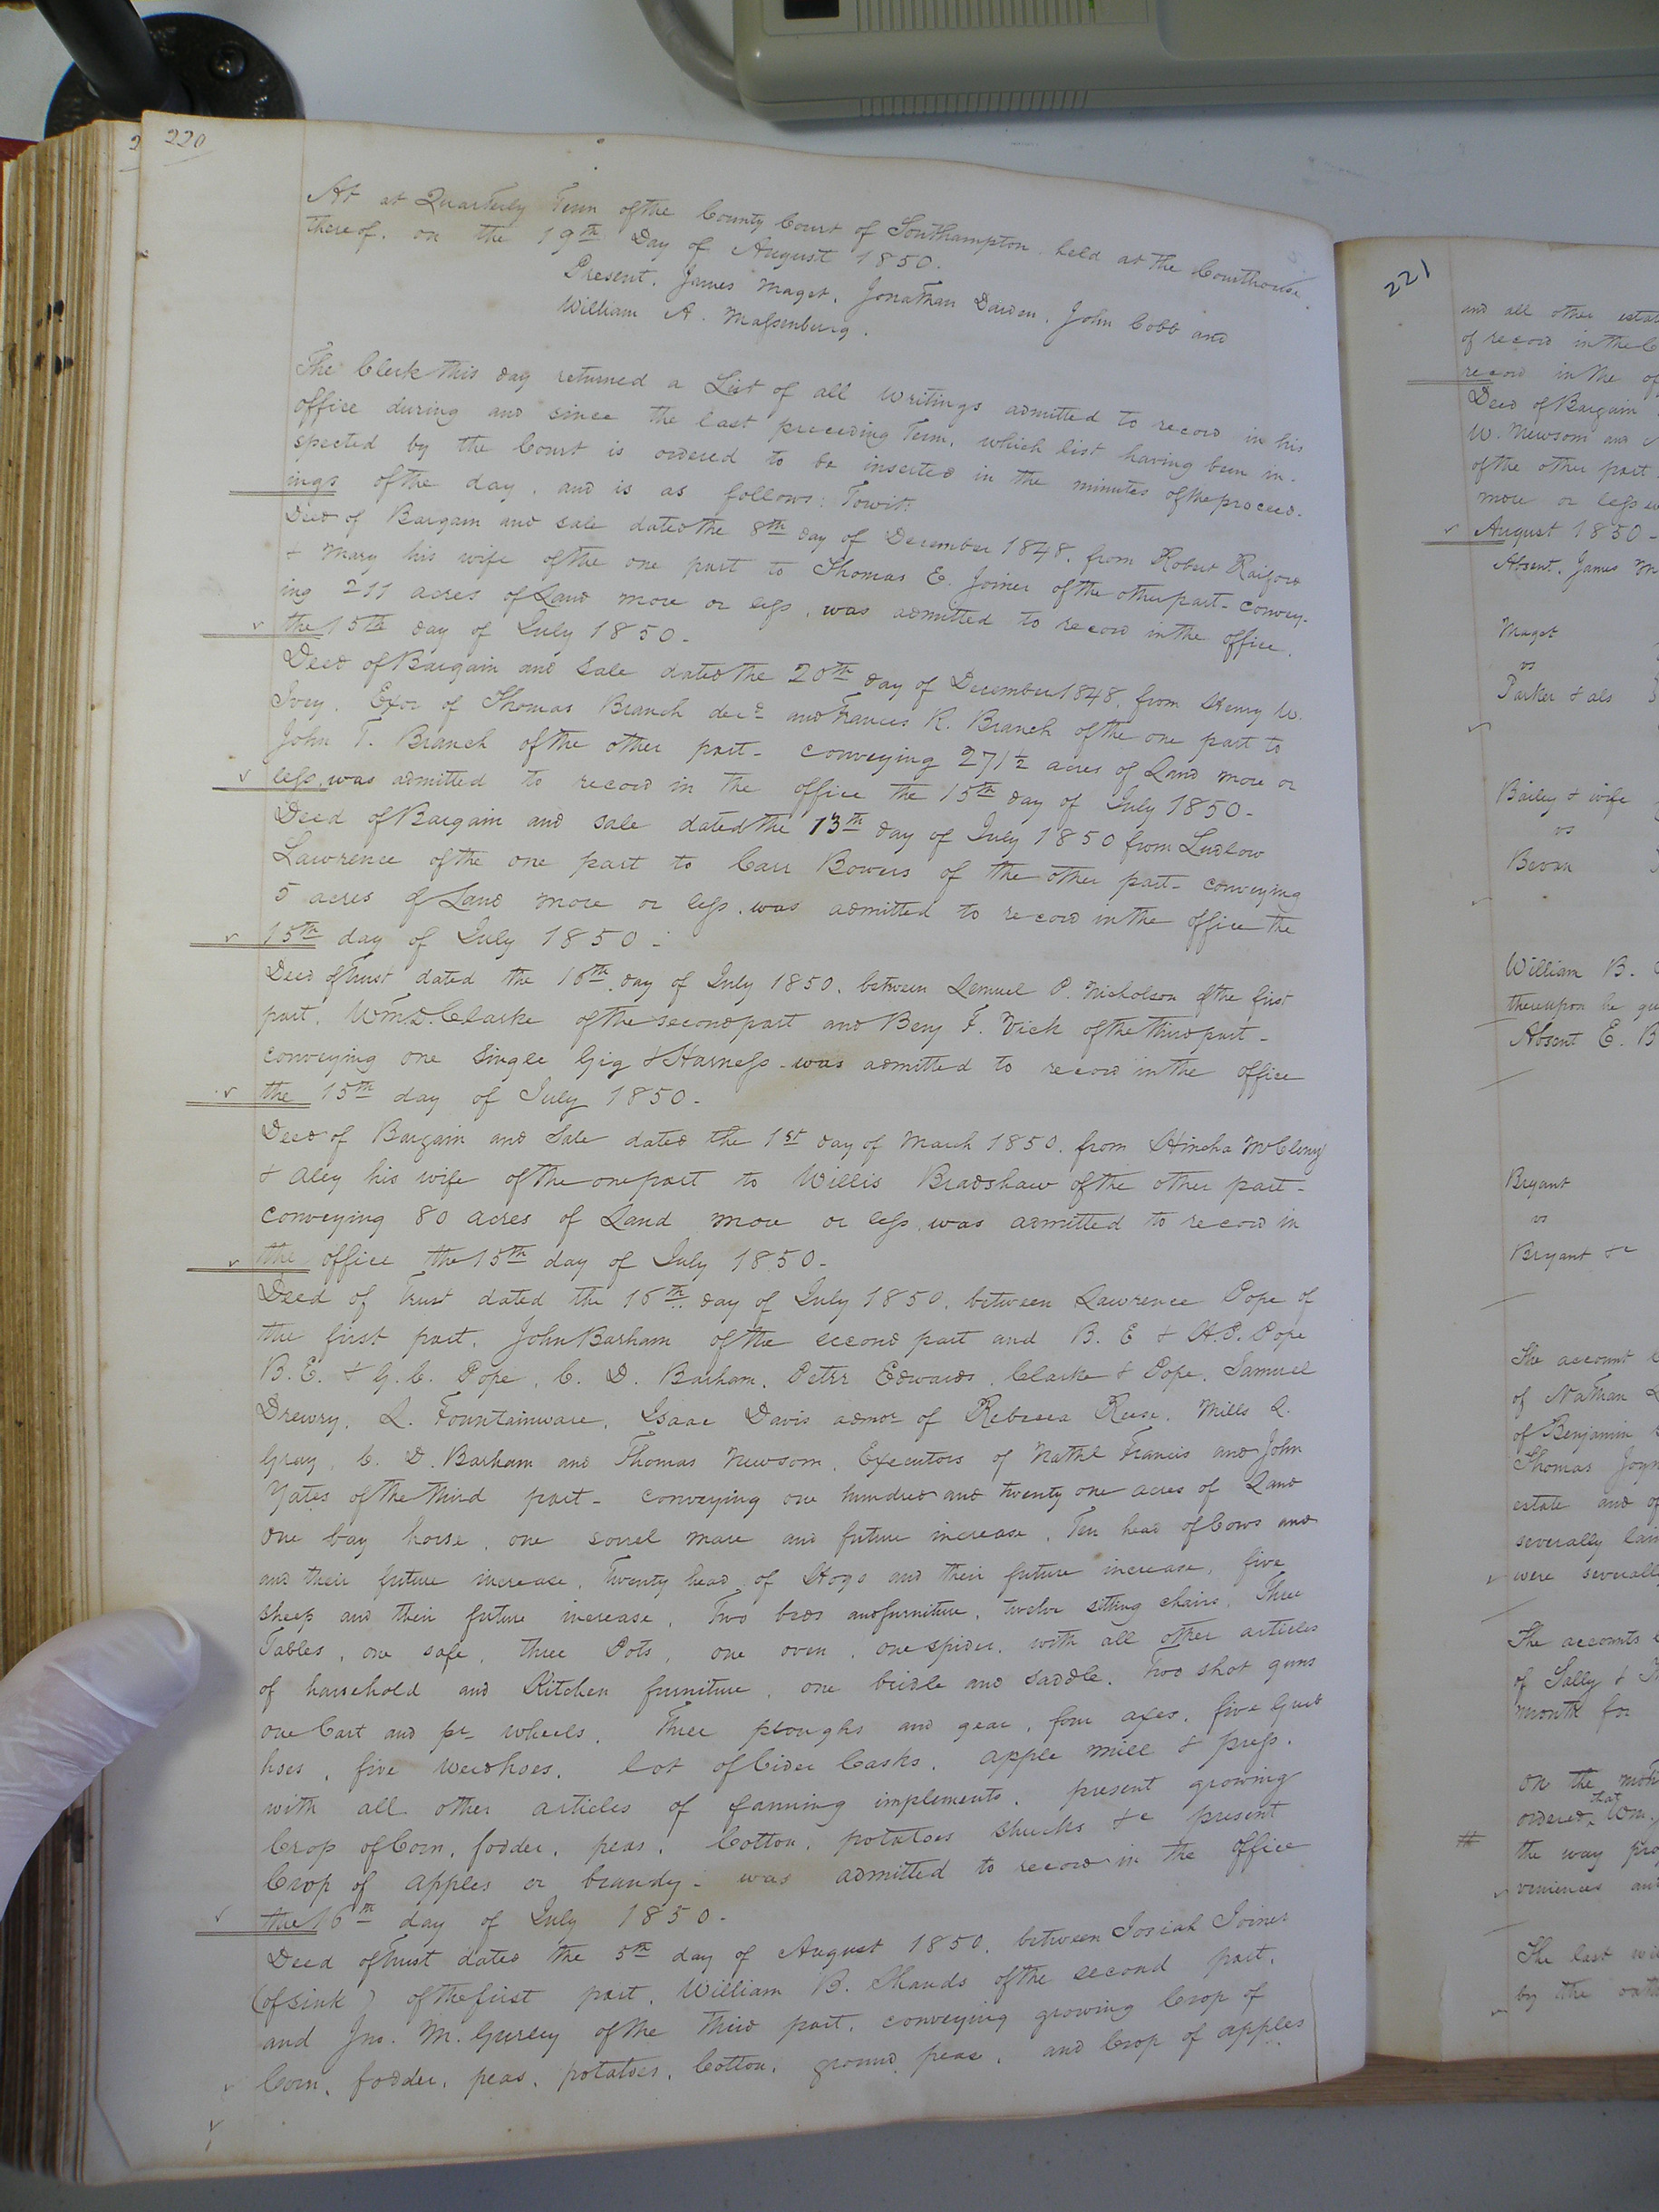 220
At at Quarterly Term of the County Court of Southampton held at the Courthouse
thereof. on the 19th Day of August 1850.
Present, James Maget, Jonathan Darden, John Cobb and
William A. Massenburg.
The Clerk this day returned a List of all Writings admitted to record in his
office during and since the last preceeding Term, which list having been in-
spected by the Court is ordered to be inserted in the minutes of the proceed-
ings of the day, and is as follows: Towit:
Deed of Bargain and sale dated the 8th day of December 1848, from Robert Raiford
& Mary his wife of the one part to Thomas E. Joiner of the other part- convey-
ing 211 acres of Land more or less, was admitted to record in the office.
the 15th day of July 1850-
Deed of Bargain and Sale dated the 20th day of December 1848, from Henry W.
Ivey, Exor of Thomas Branch decd and Frances R. Branch of the one part to
John T. Branch of the other part- conveying 271½ acres of Land more or
less, was admitted to record in the office the 15th day of July 1850-
Deed of Bargain and sale dated the 13th day of July 1850 from Ludlow
Lawrence of the one part to Carr Bowers of the other part- conveying
5 acres of Land more or less, was admitted to record in the office the
15th day of July 1850-
Deed of Trust dated the 16th day of July 1850, between Lemuel P. Nicholson of the first
part, Wm D. Clarke of the second part and Benj F. Vick of the third part-
conveying one Single Gig & Harness- was admitted to record in the office
the 15th day of July 1850-
Deed of Bargain and Sale dated the 1st day of March 1850, from Hincha McCleny
& Aley his wife of the one part to Willis Bradshaw of the other part-
conveying 80 acres of Land more or less, was admitted to record in
the office the 15th day of July 1850-
Deed of Trust dated the 16th day of July 1850, between Lawrence Pope of
the first part, John Barham of the second part and B. E & H.P. Pope
B. E. & G. C. Pope, C. D. Barham, Peter Edwards, Clarke & Pope, Samuel
Drewry, L. Fountainware, Isaac Davis admor of Rebecca Reese, Mills L.
Gray, C. D. Barham and Thomas Newsom, Executors of Nathl Francis and John
Yates of the third part- conveying one hundred and twenty one acres of Land
one bay horse, one sorrel mare and future increase, Ten head of Cows and
and their future increase, Twenty head of Hogs and their future increase, five
sheep and their future increase, Two beds and furniture, twelve sitting chairs, Three
Tables, one safe, three Pots, one oven, one spider, with all other articles
of household and Kitchen furniture, one bridle and saddle. Two shot guns
one Cart and pr wheels, Three ploughs and gear, four axes, five Grub
hoes, five weed hoes, lot of Cider Casks, apple mill & press,
with all other articles of farming implements, present growing
Crop of Corn, fodder, peas, Cotton, potatoes shucks &c present
Crop of apples or brandy- was admitted to record in the Office
the 16th day of July 1850-
Deed of Trust dated the 5th day of August 1850, between Josiah Joiner
(of Sink) of the first part, William B. Shands of the second part,
and Jno. M. Gurley of the third part, conveying growing Crop of
Corn, fodder, peas, potatoes, Cotton, ground peas, and Crop of apples
221
and all other
of record in the
record in the
Deed of Bargain
W. Newsom and
of the other part
more or less
August 1850-
Absent, James
Maget
vs
Parker & als
Bailey & wife
vs
Bevan
William B.
thereupon he
Absent E. B
Bryant
vs
Bryant &c
The account
of Nathan
of Benjamin
Thomas
estate and
severally
were severally
The accounts
of Sally &
month for
On the
ordered that Wm.
the way
veniences and
The last
by the